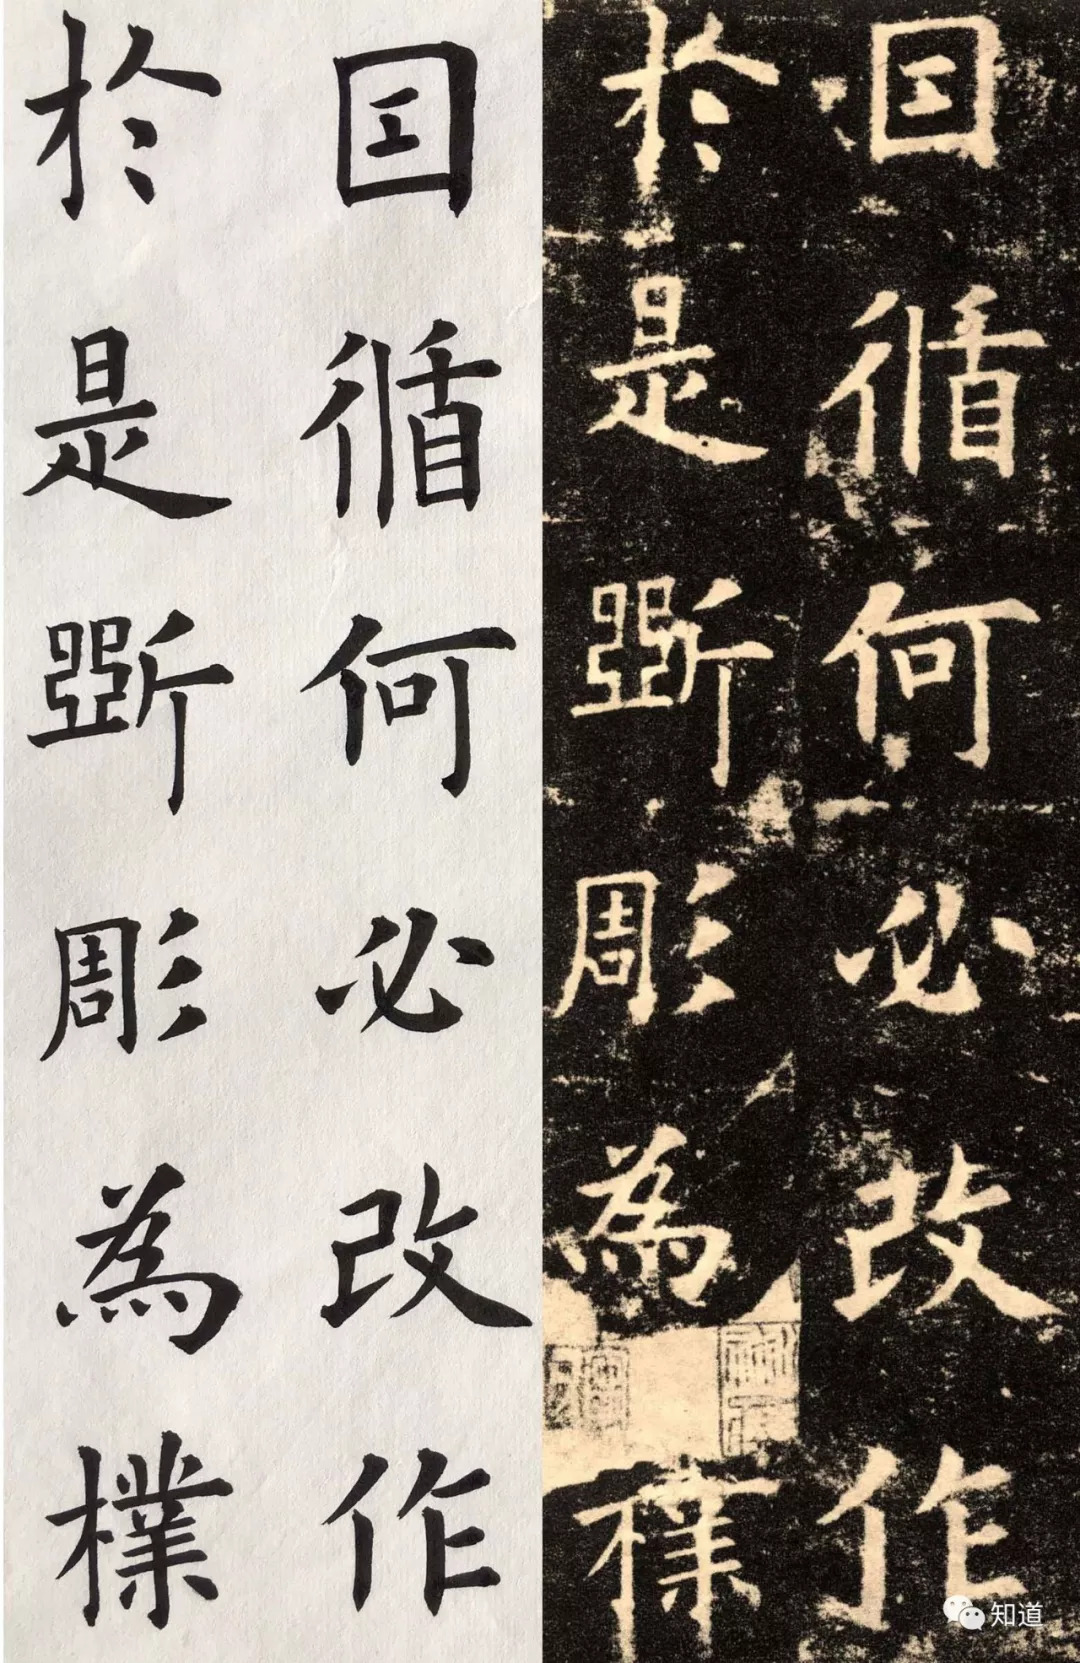 囙循何必改作
於是斲彫為樸
囙循何必改作
於是斲彫為樸
知道